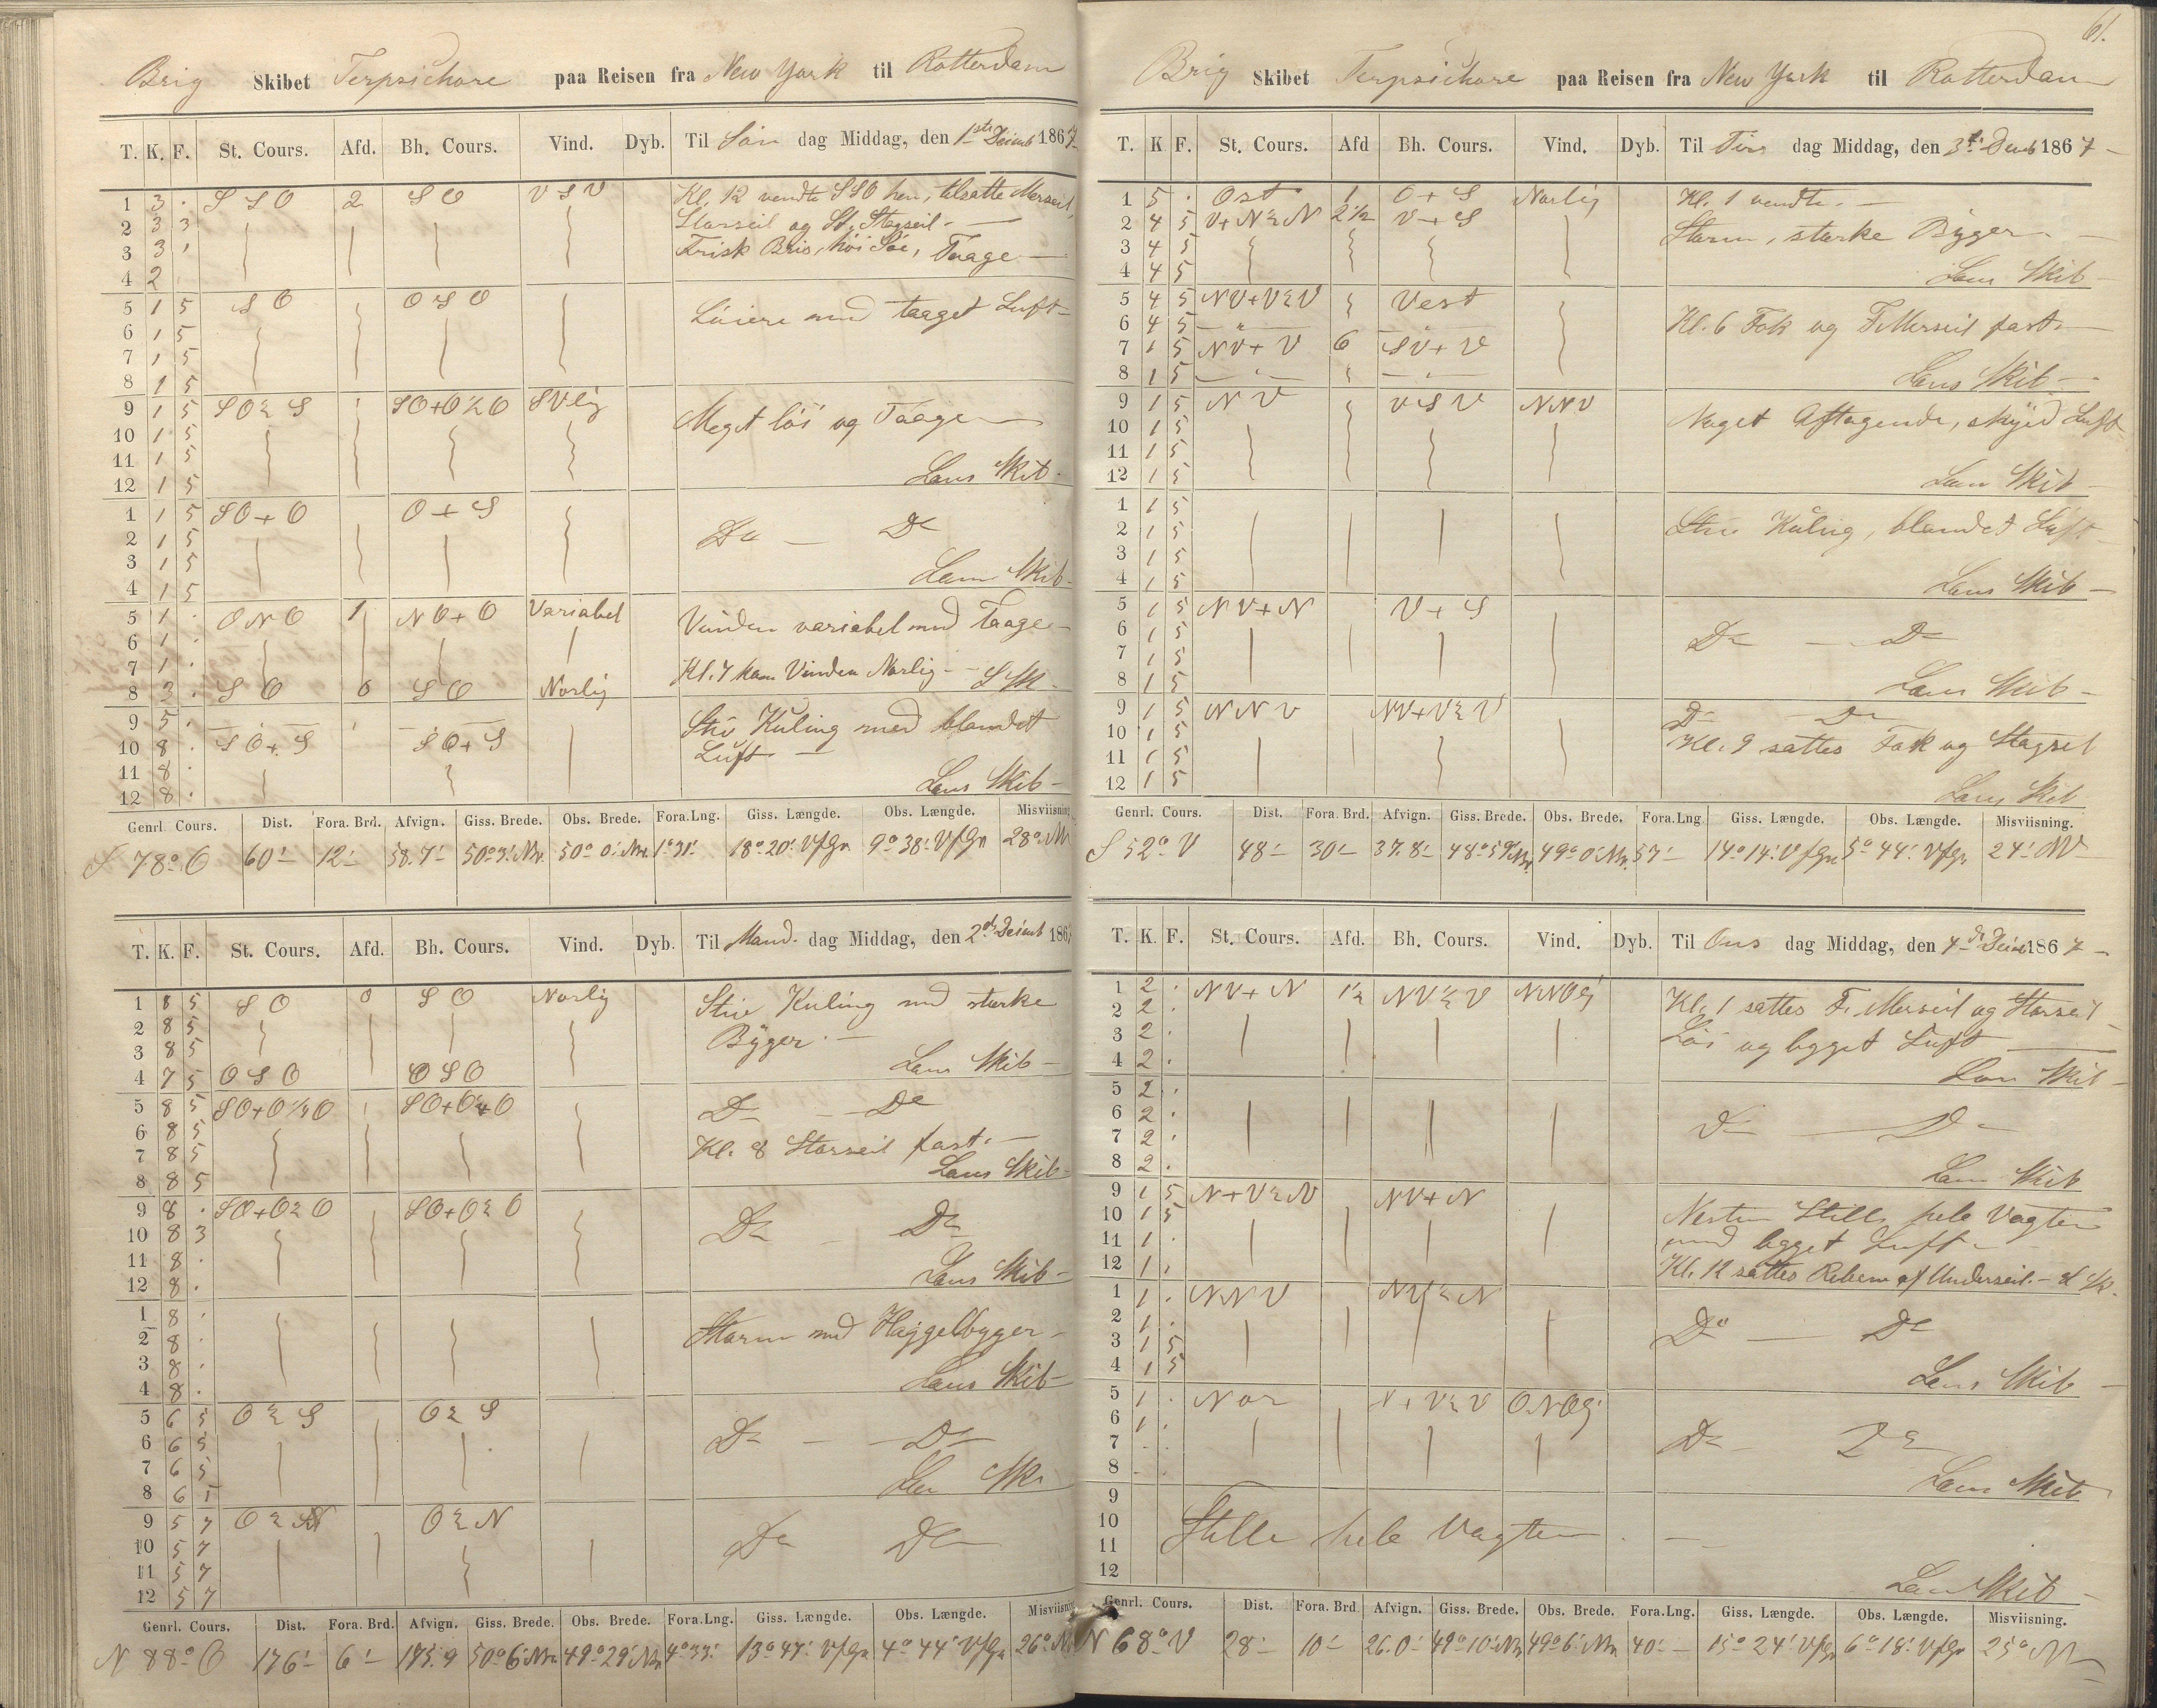 Brig Skibet Terpsichore paa Reisen fra New York til Rotterdam
T. K. F. St. Cours. Afd. Bh. Cours. Vind. Dyb. Til Søn dag Middag, den 1ste Decemb 1867
1 3 . S S O 2 S O V S V Kl. 12 vendte SSO hen, tilsatte Mersseil,
2 3 3 Storseil og St. Stagseil -
3 3 . Frisk Bris, høi Söe, Taage -
4 2 .
5 1 5 S O O S O Löiere med taaget Luft -
6 1 5
7 1 5
8 1 5
9 1 5 S O ½ S S O + O ½ O S V lig Meget löi og Taage
10 1 5
11 1 5 Lens Skib -
12 1 5
1 1 5 S O + O O + S
2 1 5 Do - Do
3 1 5
4 1 5 Lens Skib -
5 1 . O N O 1 N O + O Variabel Vinden variabel med Taage -
6 1 .
7 1 . Kl. 7 kom Vinden Norlig - L Sk.
8 3 . S O 0 S O Norlig
9 5 . Stiv Kuling med blandet
10 8 . S O + S S O + S Luft -
11 8 .
12 8 . Lens Skib -
Genrl. Cours. Dist. Fora. Brd. Afvign. Giss. Brede. Obs. Brede. Fora.Lng. Giss. Længde. Obs. Længde. Misviisning
S 78° O 60' 12' 58.7' 50° 3' Nbr. 50° 0' Nbr. 1° 31' 18° 20' VfGr 9° 38' VfGr 28° NV
T. K. F. St. Cours. Afd. Bh. Cours. Vind. Dyb. Til Mand. dag Middag, den 2den Decemb 1867
1 8 5 S O 0 S O Norlig Stiv Kuling med stærke
2 8 5 Byger. -
3 8 5 Lens Skib -
4 7 5 O S O O S O
5 8 5 S O + O ½ O S O + O ½ O Do - Do
6 8 5
7 8 5 Kl. 8 Storseil fast. -
8 8 5 Lens Skib -
9 8 . S O + O ½ O S O + O ½ O
10 8 3 Do - Do
11 8 .
12 8 . Lens Skib -
1 8 . Storm med Haggelbyger -
2 8 .
3 8 . Lens Skib -
4 8 .
5 6 5 O ½ S O ½ S
6 6 5 Do - Do
7 6 5
8 6 5
9 5 7 O ½ N O ½ N Do Do
10 5 7
11 5 7
12 5 7
Genrl. Cours. Dist. Fora. Brd. Afvign. Giss. Brede. Obs. Brede. Fora.Lng. Giss. Længde. Obs. Længde. Misviisning
N 88° O 176' 6' 175.9 50° 6' Nbr 49° 29' Nbr 4° 33' 13° 47' VfGr 4° 44' VfGr 26° NV
61.
Brig Skibet Terpsichore paa Reisen fra New York til Rotterdam
T. K F. St. Cours. Afd Bh. Cours. Vind. Dyb. Til Tirs dag Middag, den 3die Decemb 1867 -
1 5 . Ost 1 O + S Norlig Kl. 1 vendte. -
2 4 5 V + N ½ N 2 ½ V + S Storm, stærke Byger -
3 4 5
4 4 5 Lens Skib -
5 4 5 NV + V ½ V Vest
6 4 5 Kl. 6 Fok og F. Merseil fast -
7 1 5 NV + V 6 SV + V
8 1 5 Lens Skib -
9 1 5 N V V S V NNV Noget Aftagende, skyed Luft
10 1 5
11 1 5
12 1 5 Lens Skib -
1 1 5
2 1 5 Stiv Kuling, blandet Luft -
3 1 5
4 1 5 Lens Skib -
5 1 5 NV + N V + S
6 1 5 Do - Do
7 1 5
8 1 5 Lens Skib -
9 1 5 N N V NV + V ½ V Do Do
10 1 5 Kl. 9 sattes Fok og Stagseil
11 1 5
12 1 5 Lens Skib
Genrl. Cours. Dist. Fora. Brd. Afvign. Giss. Brede. Obs. Brede. Fora.Lng Giss. Længde. Obs. Længde. Misviisning.
S 52° V 48' 30' 37.8' 48° 59' Nbr. 49° 0' Nbr. 57' 14° 14' VfGr 5° 44' VfGr 24° NV
T. K. F. St. Cours. Afd. Bh. Cours. Vind. Dyb. Til Ons dag Middag, den 4de Decemb 1867 -
1 2 . NV + N 1½ NV ½ V NNO lig Kl. 1 sattes F. Merseil og Storseil
2 2 . Löi og bygget Luft
3 2 .
4 2 . Lens Skib -
5 2 .
6 2 . Do - Do
7 2 .
8 2 . Lens Skib
9 1 5 N + V ½ N NV + N Nesten Stille hele Vagten
10 1 5 med bygget Luft -
11 1 .
12 1 . Kl. 12 sattes Rebene af Underseil. - L Sk.
1 1 . N N V NV ½ N
2 1 . Do - Do
3 1 5
4 1 5 Lens Skib -
5 1 . Nor N + V ½ V ONO lig
6 1 . Do - Do
7 . .
8 - . Lens Skib
9
10 Stille hele Vagten -
11
12 Lens Skib -
Genrl. Cours. Dist. Fora. Brd Afvign. Giss. Brede. Obs. Brede. Fora.Lng. Giss. Længde. Obs. Længde. Misviisning.
N 68° V 28' 10' 26.0' 49° 10' Nbr 49° 6' Nbr 40' 15° 24' VfGr 6° 18' VfGr 25° NV